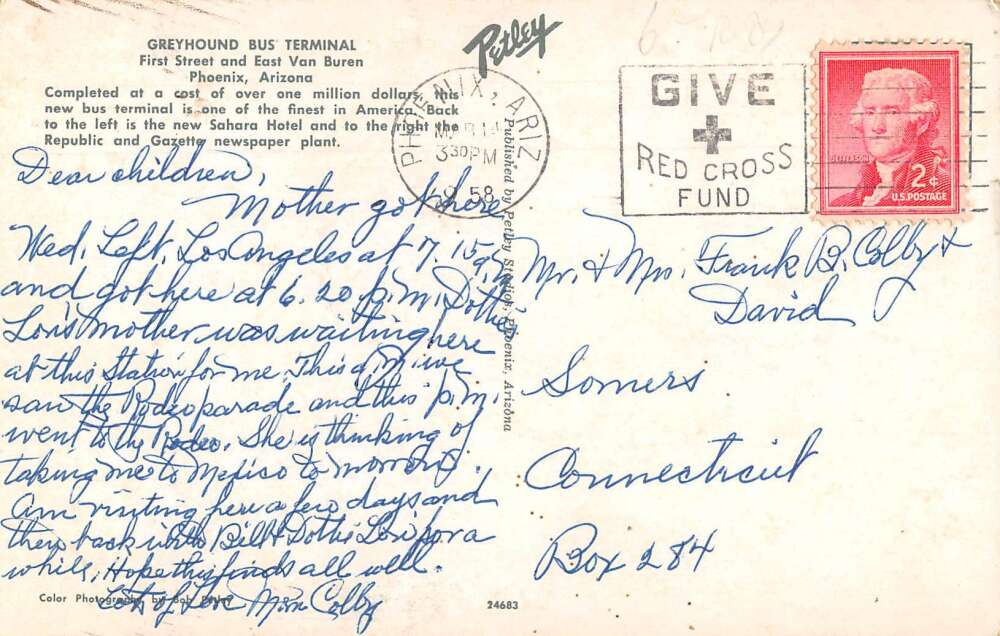 GREYHOUND BUS TERMINAL
First Street and East Van Buren
Phoenix, Arizona
Completed at a cost of over one million dollars, this
new bus terminal is one of the finest in America. Back
to the left is the new Sahara Hotel and to the right the
Republic and Gazette newspaper plant.
Petley
PHOENIX, ARIZ
MAR 14
3 30 PM
58
GIVE
RED CROSS
FUND
JEFFERSON
2¢
U.S. POSTAGE
Dear children,
Mother got here
Wed. Left Los Angeles at 7.15 a.m.
and got here at 6.20 p.m. Dottie
Lois mother was waiting here
at this Station for me. This a.m. we
saw the Rodeo parade and this p.m.
went to the Rodeo. She is thinking of
taking me to Mexico to morrow.
Am visiting here a few days and
then back with Bill & Dottie Lois for a
while, Hope this finds all well.
Lots of Love Mom Colby
Published by Petley Studios, Phoenix, Arizona
Mr. & Mrs. Frank B. Colby &
David
Somers
Connecticut
Box 284
Color Photograph by Bob Petley
24683